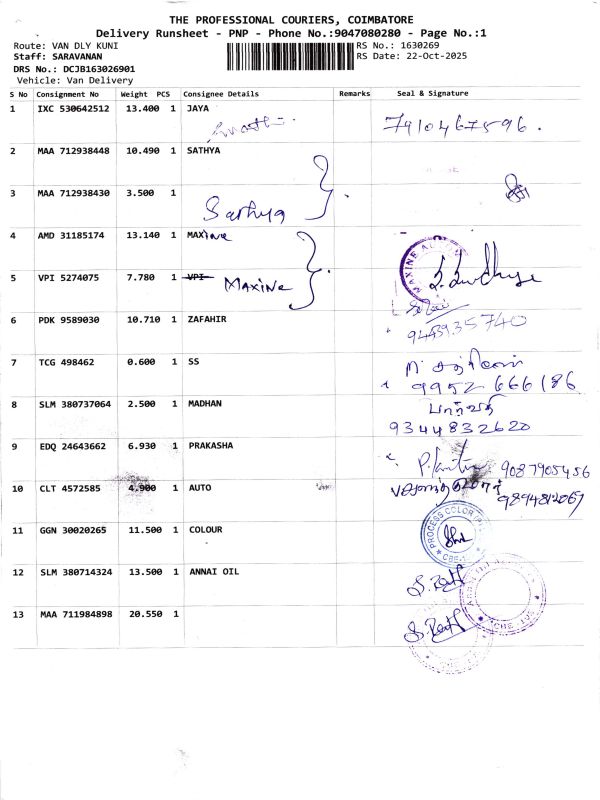 THE PROFESSIONAL COURIERS, COIMBATORE
Delivery Runsheet - PNP - Phone No.:9047080280 - Page No.:1
Route: VAN DLY KUNI RS No.: 1630269
Staff: SARAVANAN RS Date: 22-Oct-2025
DRS No.: DCJB163026901
Vehicle: Van Delivery
S No Consignment No Weight PCS Consignee Details Remarks Seal & Signature
1 IXC 530642512 13.400 1 JAYA
7910467596.
2 MAA 712938448 10.490 1 SATHYA
3 MAA 712938430 3.500 1
Sathya
4 AMD 31185174 13.140 1 MAXine
5 VPI 5274075 7.780 1 VPI Maxine
MAXINE
6 PDK 9589030 10.710 1 ZAFAHIR
9443935740
7 TCG 498462 0.600 1 SS
9952 666186
8 SLM 380737064 2.500 1 MADHAN
பார்வதி
9344832620
9 EDQ 24643662 6.930 1 PRAKASHA
9087905456
10 CLT 4572585 4.900 1 AUTO
9894812067
11 GGN 30020265 11.500 1 COLOUR
PROCESS COLOR
12 SLM 380714324 13.500 1 ANNAI OIL
13 MAA 711984898 20.550 1